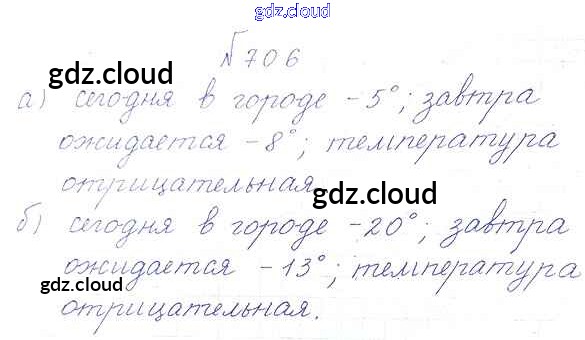 gdz.cloud
№706
gdz.cloud
а) сегодня в городе -5°; завтра
ожидается -8°; температура
отрицательная.
gdz.cloud
б) сегодня в городе -20°; завтра
ожидается -13°; температура
gdz.cloud
отрицательная.
gdz.cloud